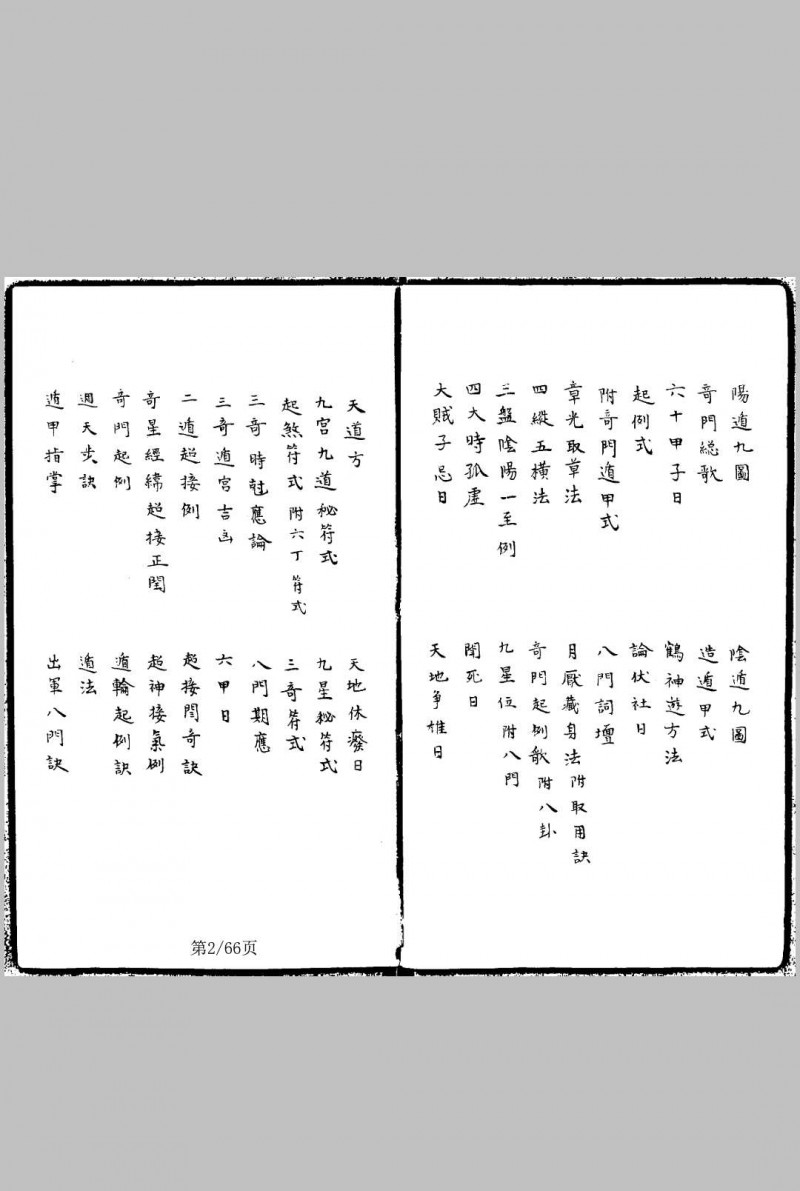 陽遁九圖
陰遁九圖
奇門總歌
造遁甲式
六十甲子日
鶴神遊方法
起例式
論伏社日
附奇門遁甲式
八門詞壇
章光取草法
月厭藏身法 附取用訣
四縱五橫法
奇門起例歌 附八卦
三盤陰陽一至例
九星位 附八門
四大時孤虛
閉死日
大賊子忌日
天地爭雄日
天道方
天地休癈日
九宮九道秘符式
九星秘符式
起煞符式 附六丁符式
三奇符式
三奇時尅應論
八門期應
三奇遁宮吉凶
六甲日
二遁超接例
超接閏奇訣
奇星經緯超接正閏
超神接氣例
奇門起例
遁輪起例訣
週天步訣
遁法
遁甲指掌
出軍八門訣
第2/66页